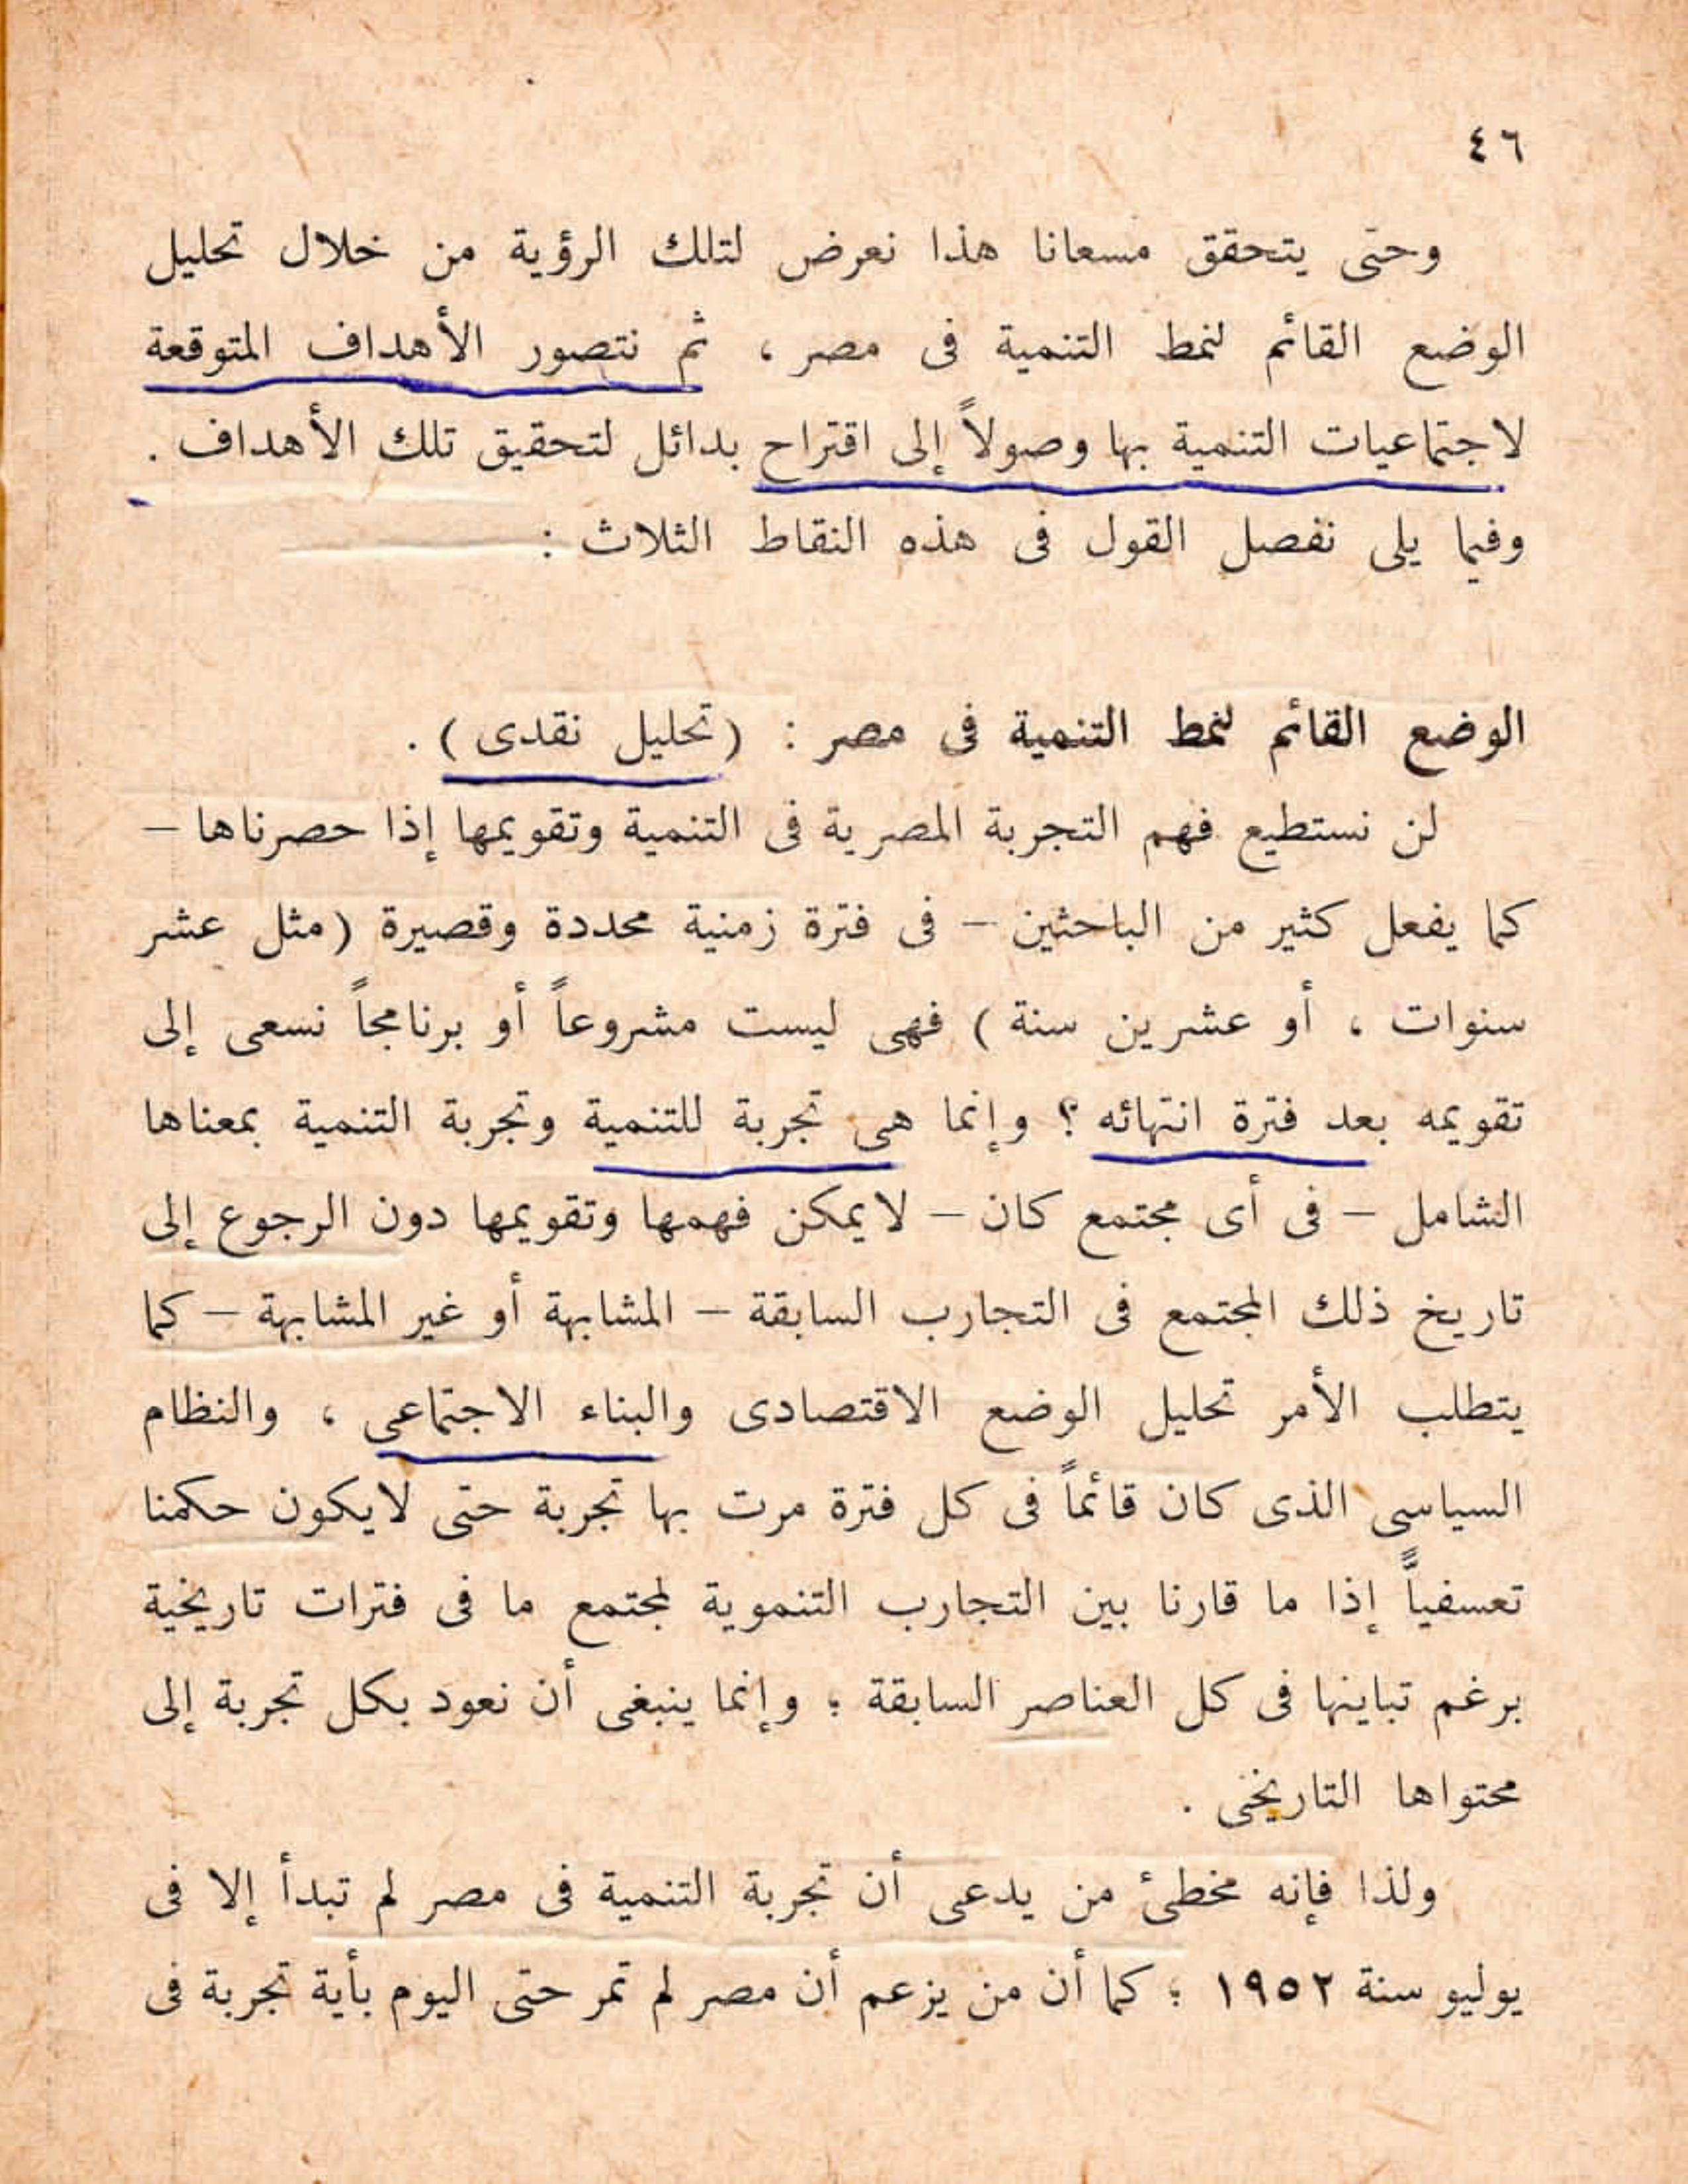 ٤٦
وحتى يتحقق مسعانا هذا نعرض لتلك الرؤية من خلال تحليل
الوضع القائم لنمط التنمية فى مصر ، ثم نتصور الأهداف المتوقعة
لاجتماعيات التنمية بها وصولاً إلى اقتراح بدائل لتحقيق تلك الأهداف .
وفيما يلى نفصل القول فى هذه النقاط الثلاث :
الوضع القائم لنمط التنمية فى مصر : (تحليل نقدى) .
لن نستطيع فهم التجربة المصرية فى التنمية وتقويمها إذا حصرناها –
كما يفعل كثير من الباحثين – فى فترة زمنية محددة وقصيرة (مثل عشر
سنوات ، أو عشرين سنة) فهى ليست مشروعاً أو برنامجاً نسعى إلى
تقويمه بعد فترة انتهائه ؟ وإنما هى تجربة للتنمية وتجربة التنمية بمعناها
الشامل – فى أى مجتمع كان – لايمكن فهمها وتقويمها دون الرجوع إلى
تاريخ ذلك المجتمع فى التجارب السابقة – المشابهة أو غير المشابهة – كما
يتطلب الأمر تحليل الوضع الاقتصادى والبناء الاجتماعى ، والنظام
السياسى الذى كان قائماً فى كل فترة مرت بها تجربة حتى لايكون حكمنا
تعسفياًّ إذا ما قارنا بين التجارب التنموية لمجتمع ما فى فترات تاريخية
برغم تباينها فى كل العناصر السابقة ؛ وإنما ينبغى أن نعود بكل تجربة إلى
محتواها التاريخى .
ولذا فإنه مخطئ من يدعى أن تجربة التنمية فى مصر لم تبدأ إلا فى
يوليو سنة ١٩٥٢ ؛ كما أن من يزعم أن مصر لم تمر حتى اليوم بأية تجربة فى